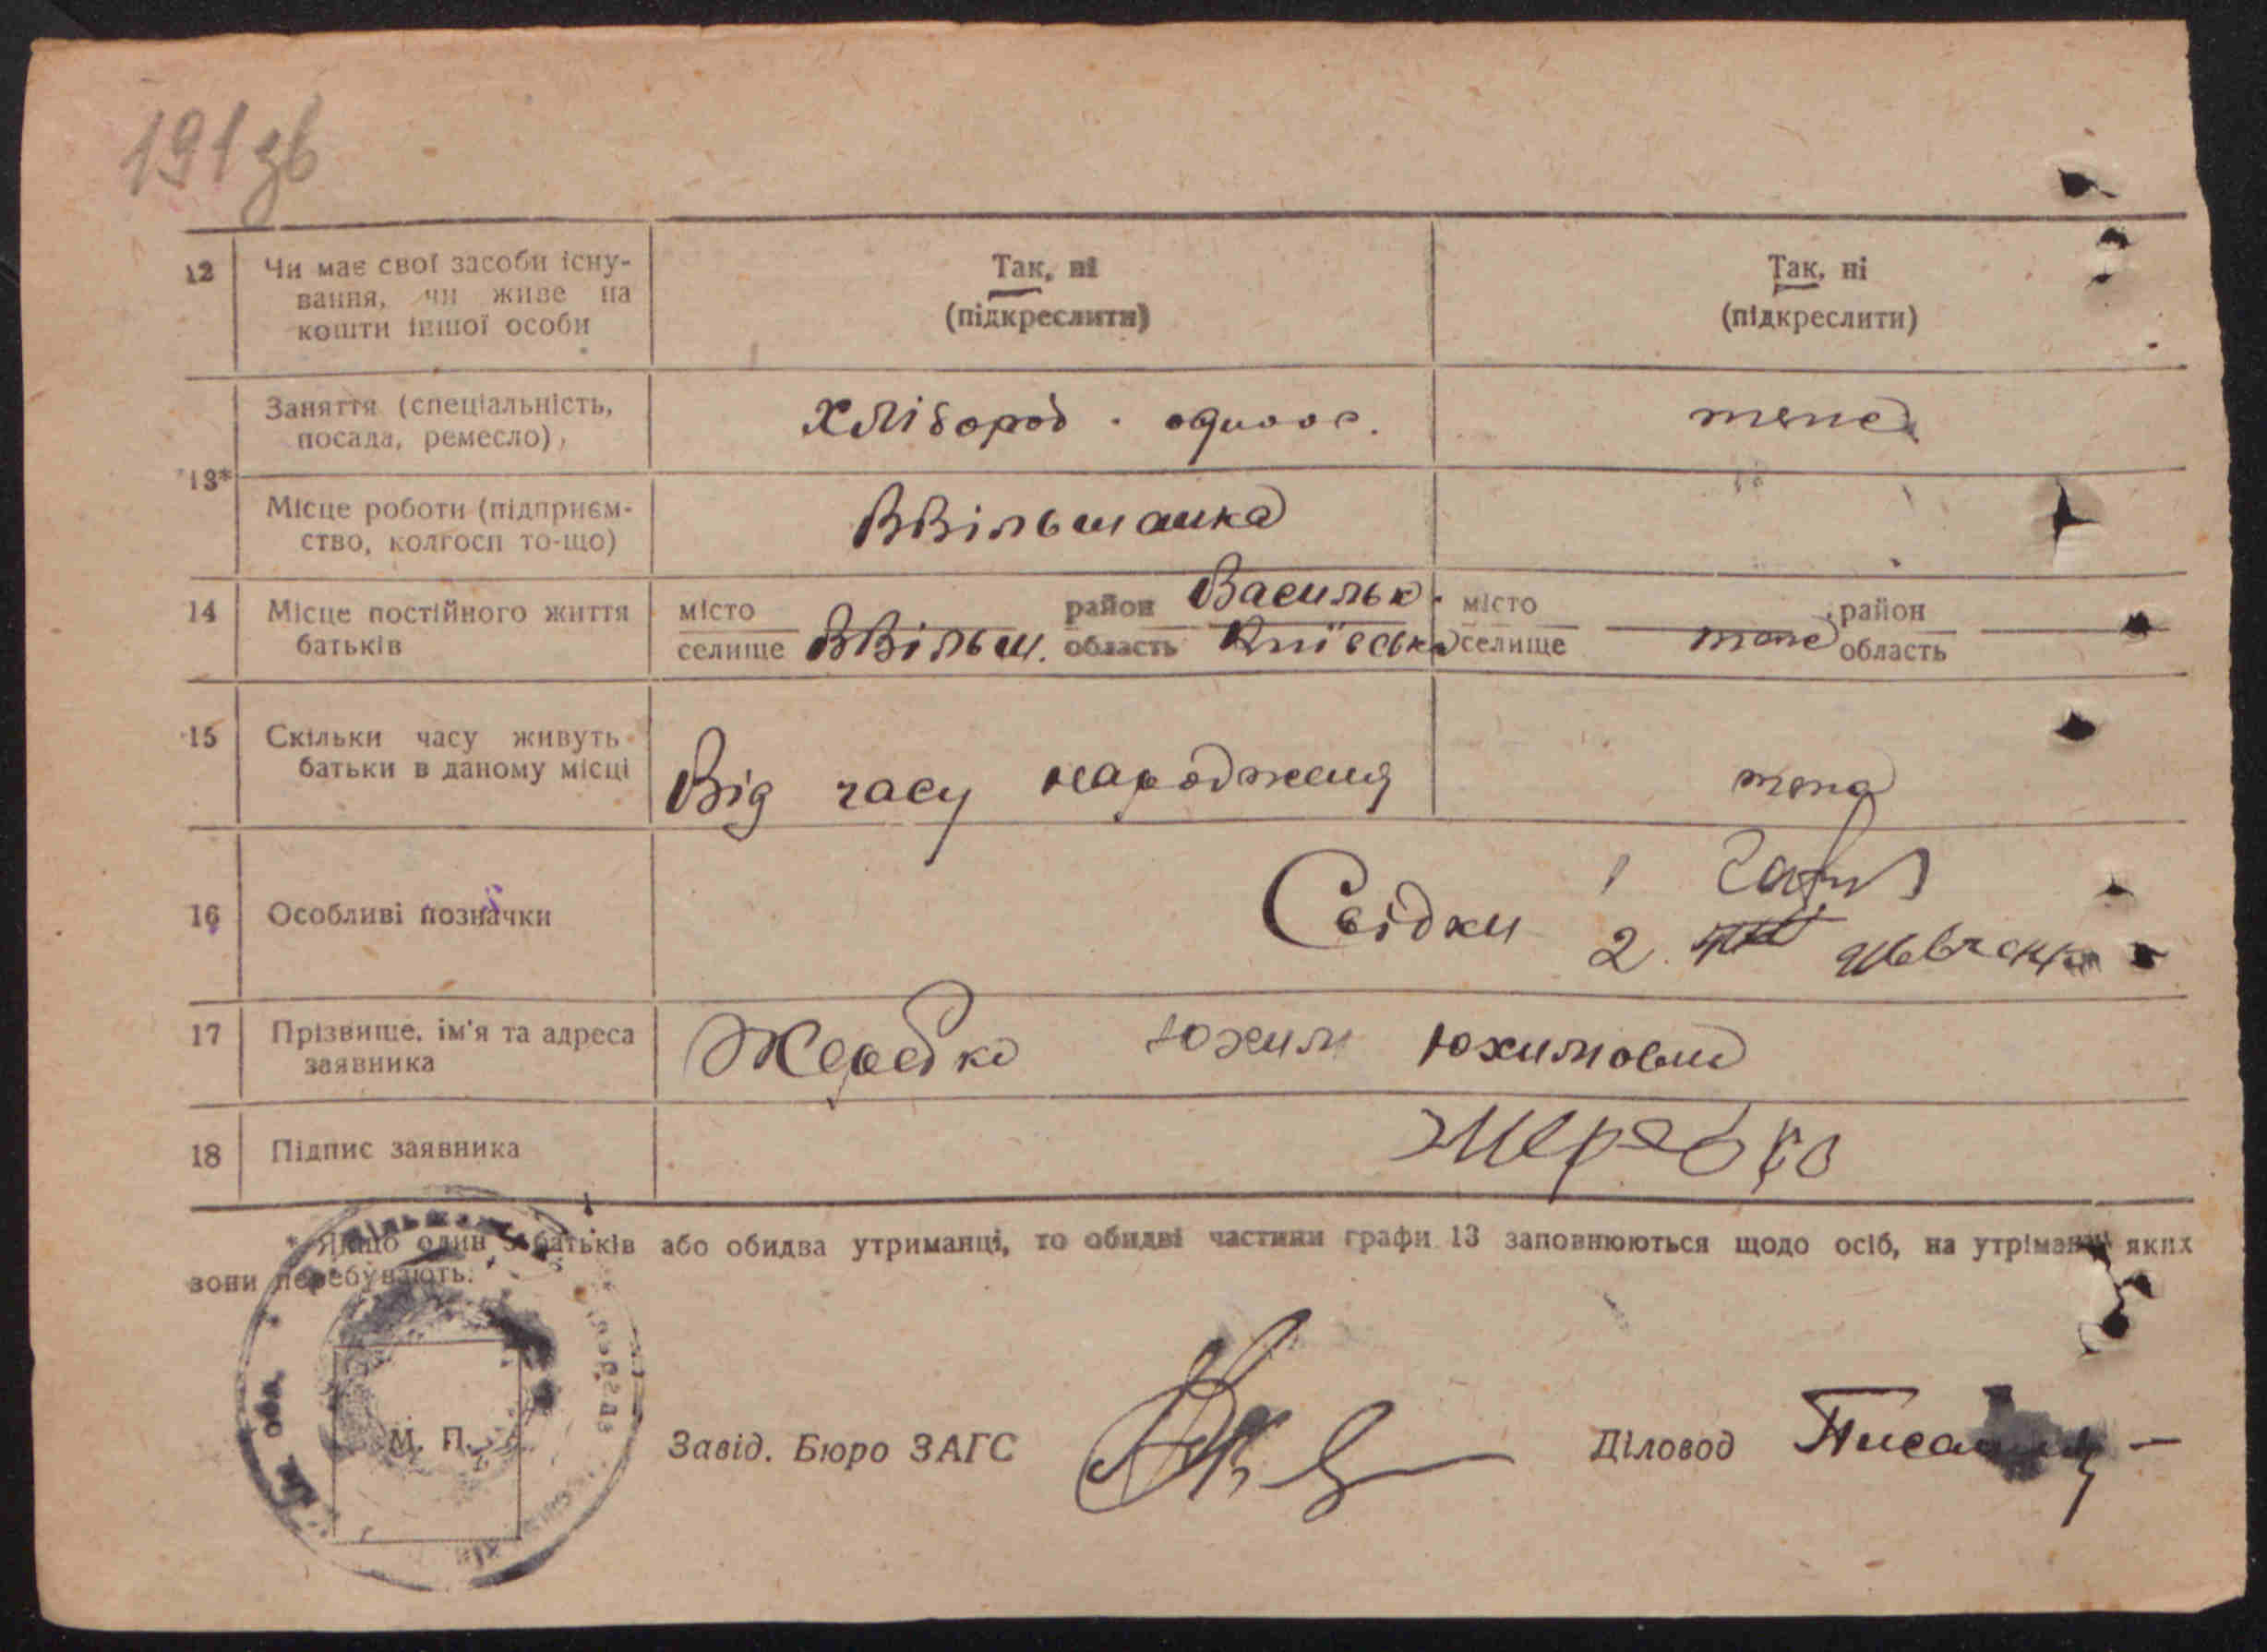 191 зв
12 Чи має свої засоби існу-
вання, чи живе на
кошти іншої особи
Так, ні
(підкреслити)
Так, ні
(підкреслити)
13*
Заняття (спеціальність,
посада, ремесло),
Хлібороб . одноос.
теже
Місце роботи (підприєм-
ство, колгосп то-що)
ВВільшанка
14 Місце постійного життя
батьків
місто
селище ВВільш.
район Васильк.
область Київська
місто
селище
теже
район
область
15 Скільки часу живуть
батьки в даному місці
Від часу народження
16 Особливі позначки
Свідки 1
2. Шевченко
17 Прізвище, ім'я та адреса
заявника
Жеребко Юхим Юхимович
18 Підпис заявника
Жеребко
* Якщо один з батьків або обидва утриманці, то обидві частини графи 13 заповнюються щодо осіб, на утріманні яких
вони перебувають.
М. П.
Завід. Бюро ЗАГС
Діловод